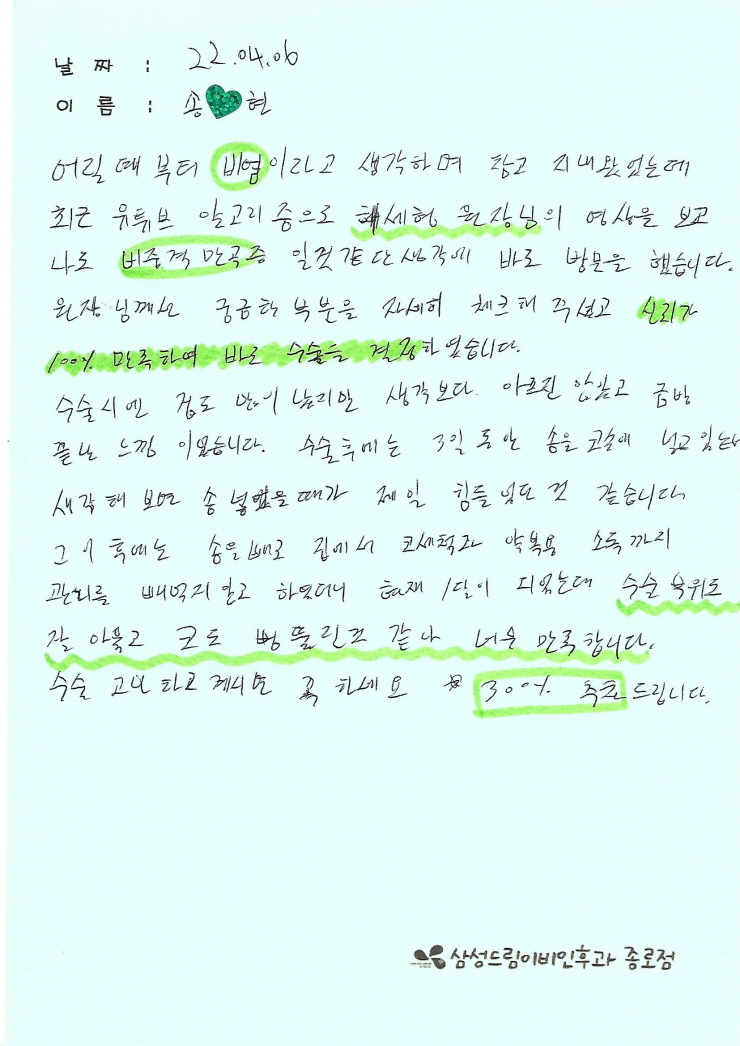 날 짜 : 22.04.06
이 름 : 송 현
어릴 때 부터 비염이라고 생각하며 참고 지내왔었는데
최근 유튜브 알고리즘으로 세형 원장님의 영상을 보고
나도 비중격만곡증 일것같단생각에 바로 방문을 했습니다.
원장님께선 궁금한 부분을 자세히 체크해 주셨고 신뢰가
100% 만족하여 바로 수술을 결정하였습니다.
수술시엔 겁도 많이 났지만 생각보다 아프진 않았고 금방
끝난 느낌 이었습니다. 수술후에는 3일 동안 솜을 코속에 넣고 있는데
생각해 보면 솜 넣었을때가 제일 힘들었던 것 같습니다
그 이 후에는 솜을 빼고 집에서 코세척과 약복용 소독까지
관리를 빼먹지않고 하였더니 현재 1달이 되었는데 수술 부위도
잘 아물고 코도 뻥 뚫린것 같아 너무 만족합니다.
수술 고민 하고 계시면 꼭 하세요 300% 추천드립니다.
삼성드림이비인후과 종로점